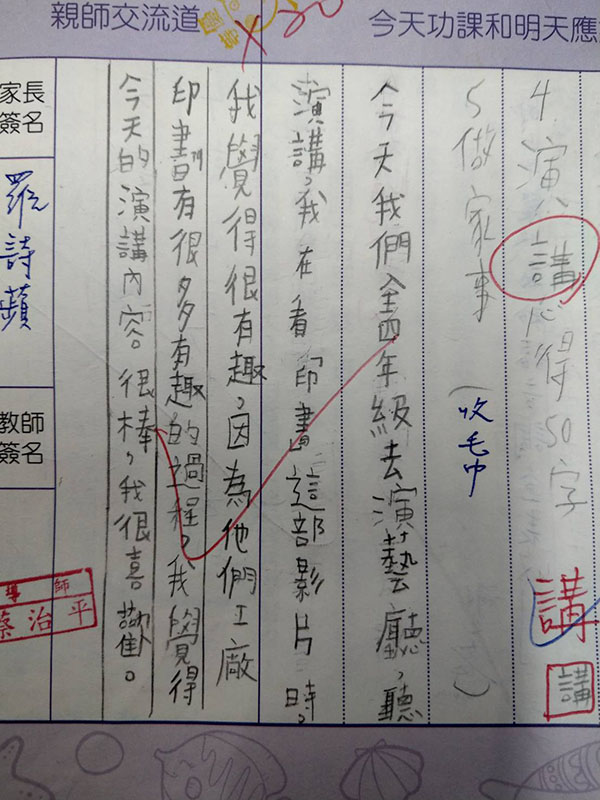 親師交流道
今天功課和明天應
×20
4 演講心得50字
講
講
5 做家事(收毛巾)
今天我們全四年級去演藝廳,聽
演講,我在看「印書」這部影片時,
我覺得很有趣,因為他們工廠
印書有很多有趣的過程,我覺得
今天的演講內容很棒,我很喜歡。
家長
簽名
羅詩蘋
教師
簽名
導師
蔡治平